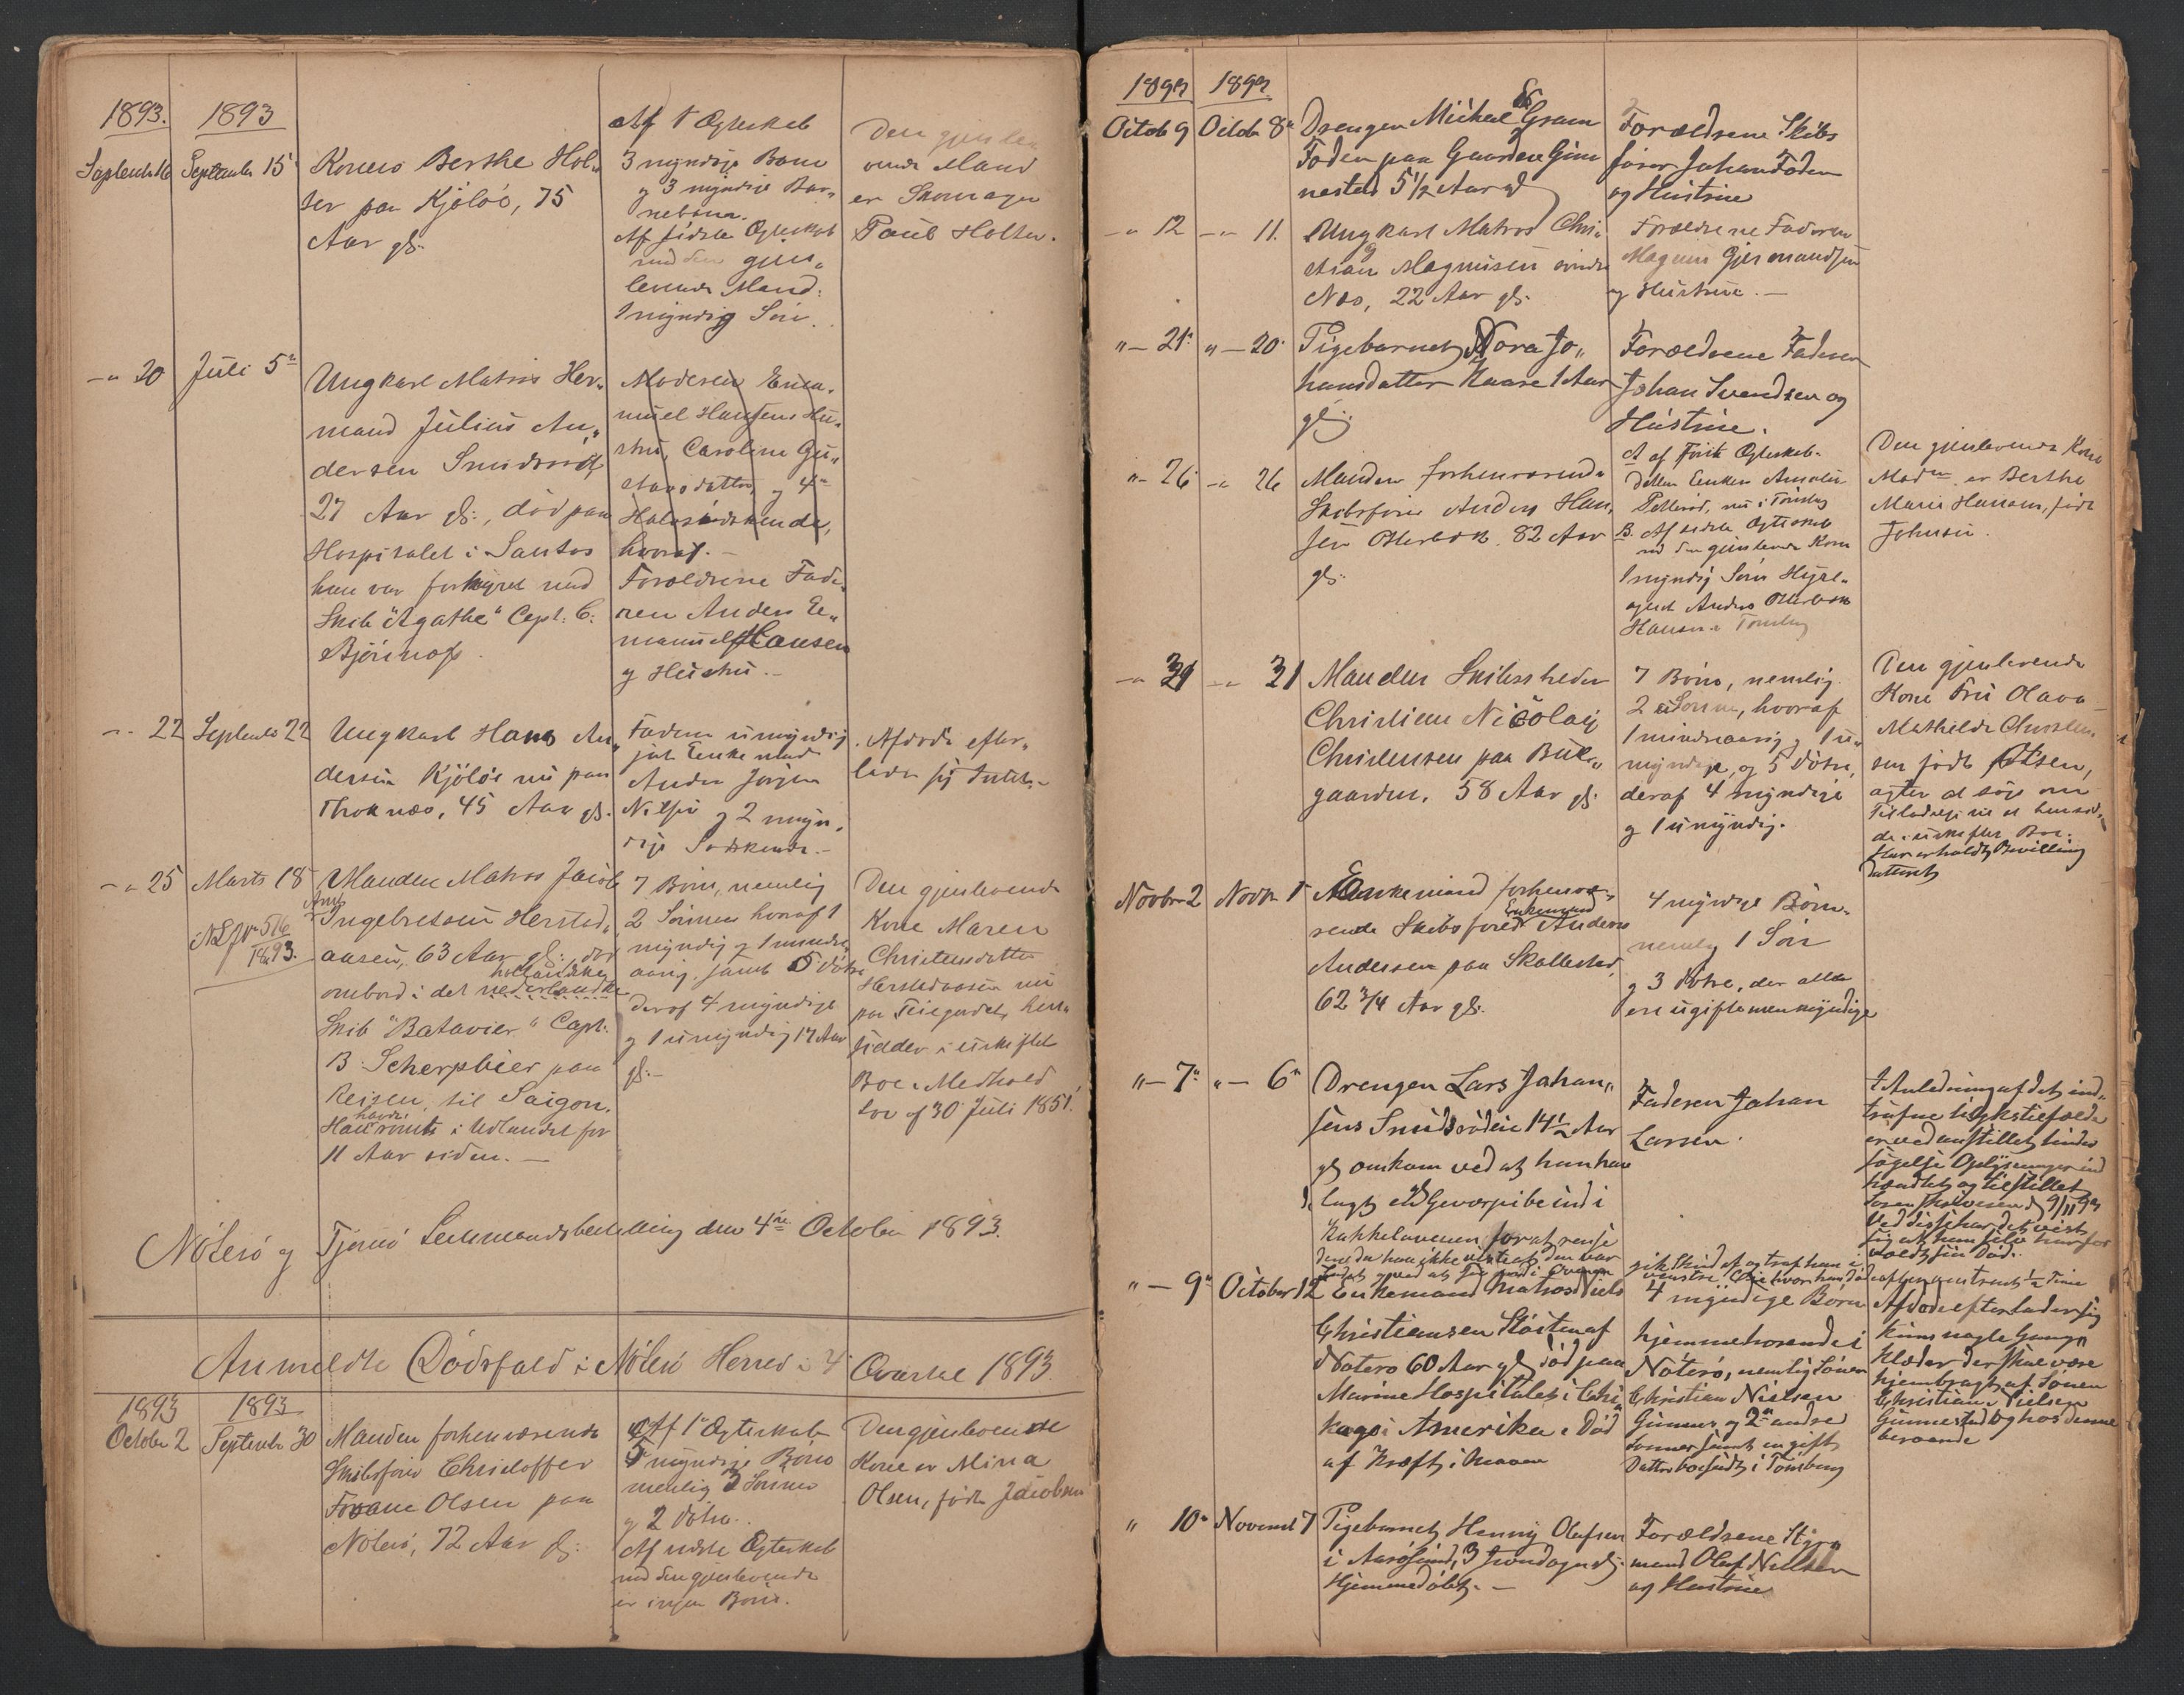 1893. 1893
Septembr 16 September 15
Konen Berthe Hol„
ter paa Kjöløe, 75
Aar gl:
Af 1 Ægteskab
3 myndige Børn
g 3 myndige Bar„
nebørn.
Af sidste Ægteskab
med den gjen„
levende Mand:
1 myndig Søn.
Den gjenlev
ende Mand
er Skomager
Paul Holter.
-" 20 Juli 5
Ungkarl Matros Her„
mand Julius An„
dersen Smidsrød
27 Aar gl:, død paa
Hospitalet i Santos
han var forhyret med
Skib "Agathe" Capt: C:
Bjönnes.
Moderen Ema„
nuel Hansens Hu„
stru, Caroline Gu„
stavsdatter, g 4
Halvsødskende,
hvoraf. -
Forældrene Fade„
ren Anders E„
manuel Hansen
g Hustru. -
-" 22 Septembr 22
Ungkarl Hans An„
dersen Kjöløe nu paa
Thoknæs, 45 Aar gl:
Faderen umyndig
gjort Enkemand
Anders Jørgen
Nilsen g 2 myn„
dige Sødskende. -
Afdøde efter„
lader sig Intet. -
-" 25 Marts 18
N.L. J No 516
1893.
Manden Matros Jacob
Ingebretsen Herstad„
aasen, 63 Aar gl: død
ombord i det nederlandske
hollandske
Skib "Batavier" Capt:
B. Scherpbier paa
Reisen til Saigon.
Han rømte i Udlandet for
havde
11 Aar siden. -
7 Børn, nemlig
2 Sønner hvoraf 1
myndig g 1 mindre„
aarig, samt 5 Døtre
deraf 4 myndige
g 1 umyndig 17 Aar
gl: -
Den gjenlevende
Kone Maren
Christensdatter
Herstadaasen nu
paa Teiegaardet, hen„
sidder i uskiftet
Bo i Medhold
Lov af 30 Juli 1851.
Nöterö g Tjømö Lensmandsbestilling den 4de October 1893.
Anmeldte Dödsfald i Nöterö Herred i 4 Qvartal 1893.
1893 1893
October 2 September 30
Manden forhenværende
Skibsfører Christoffer
Olsen paa
Nöterö, 72 Aar gl:
Af 1 Ægteskab
5 myndige Børn
nemlig 3 Sønner
g 2 Døtre.
Af sidste Ægteskab
med den gjenlevende
er ingen Børn.
Den gjenlevende
Kone er Mina
Olsen, født Jacobsen
1893 1893
Octob 9 Octob 8
Drengen Michael Gram
Foden paa Gaarden Gun
nestad 5 1/2 Aar gl
Forældrene Skibs
fører Johan Foden
og Hustrue
-" 12 -" 11.
Ungkarl Matros Chri„
stian Magnusen søndre
Næs, 22 Aar gl:
Forældrene Faderen
Magnus Gjermandsen
g Hustrue. -
"- 21 "- 20
Pigebarnet Nora Jo„
hansdatter Kaare 1 Aar
gl:
Forældrene Faderen
Johan Svendsen og
Hustrue.
"- 26 -" 26
Manden forhenværende
Skibsfører Anders Han„
sen Otterbæk 82 Aar
gl:
A af første Ægteskab.
Datter Enken Amalie
Petterød, nu i Tønsberg
B. Af sidste Ægteskab
med den gjenlevende Kone
1 myndig Søn Hyre„
agent Anders Otterbæk
Hansen i Tønsberg
Den gjenlevende Kone
Madm er Berthe
Marie Hansen, født
Johnsen.
-" 31 -" 31
Manden Skibsreder
Christian Nicolay
Christensen paa Bue„
gaarden, 58 Aar gl:
7 Børn, nemlig
2 Sønner, hvoraf
1 mindreaarig g 1 u„
myndige, og 5 Døtre,
deraf 4 myndige
g 1 umyndig.
Den gjenlevende
Kone Fru Olava
Mathilde Christen„
sen født Olsen,
agter at søge om
Tilladelse til at hensid„
de i uskiftet Bo.
Har erholdt Bevilling
dateret
Novbr 2 Novbr 1
Enkemand forhenvæ„
rende Skibsfører Anders
Enkemand
Andersen paa Skallestad,
62 3/4 Aar gl:
4 myndige Børn
nemlig 1 Søn
g 3 Døtre, der alle
ere ugifte men myndige
"- 7 "- 6
Drengen Lars Johan„
sens Smidsrødeie 14 1/2 Aar
gl omkom ved at han har
lagt et Geværpibe ind i
Kakkelovnen for at rense
den da han ikke vidste at den var
ladet g ved at i Ovnen
gik Skud af og traf han i
venstre hvor han døde efter omtrent 1/2 Time
Faderen Johan
Larsen.
I Anledning af det ind„
trufne Ulykstilfælde
er ved anstillet Under
søgelse Oplysninger ind
hendtet og tilstillet
9/11 93
Ved disse har det vist
sig at han selv har for
voldt sin Død.
"- 9 October 12
Enkemand Matros Niels
Christiansen Støiten af
Nøterø 60 Aar gl død paa
Marine Hospitalet i Chi„
kago i Amerika. Død
af Kræft i Maven
4 myndige Børn
hjemmehørende i
Nøterø, nemlig Sønen
Christian Nielsen
Gunnes, g 2 andre
Sønner samt en gift
Datter bosidt i Tønsberg
Afdøde efterlader sig
kuns nogle Gang„
klæder der skal være
hjembragt af Sønen
Christian Nielsen
Gunnestad og hos denne
beroende
" 10 Novembr 7
Pigebarnet Henny Olafsen
i Aarøsund, 3 Tverdagen gl.
Hjemmedøbt. -
Forældrene Styr„
mand Olaf Nielsen
og Hustrue